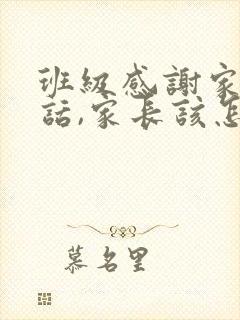 班級感謝家
話,家長該怎
慕名里